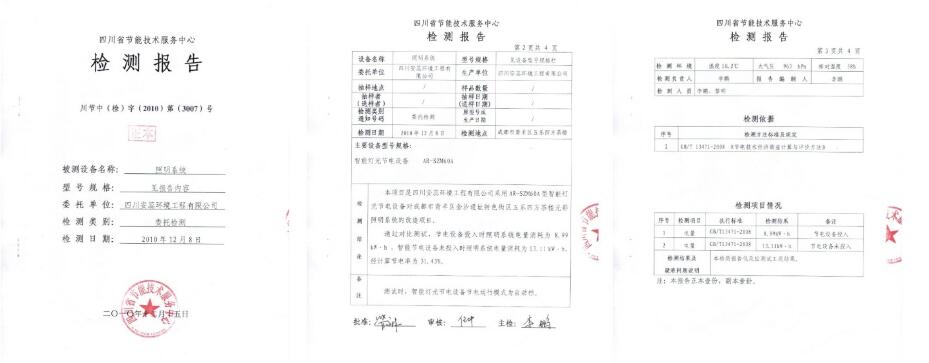 四川省节能技术服务中心
检 测 报 告
川节中（检）字（2010）第（3007）号
正本
被测设备名称： 照明系统
型 号 规 格： 见报告内容
委 托 单 位： 四川安蕊环境工程有限公司
检 测 类 别： 委托检测
检 测 日 期： 2010 年 12 月 8 日
四川省节能技术服务中心
二〇一〇年十二月十五日
四川省节能技术服务中心
检 测 报 告
第 2 页共 4 页
设备名称 照明系统 型号规格 见设备型号规格栏
委托单位 四川安蕊环境工程有限公司 生产单位 四川安蕊环境工程有限公司
抽样地点 / 样品数量 /
抽样者（送样者） / 抽样日期（送样日期） /
检测类别通知号码 委托检测 原型号或生产日期 /
检测日期 2010 年 12 月 8 日 检测地点 成都市青羊区五乐四方茶楼
主要设备型号规格：
智能灯光节电设备 AR-SZM60A
检测结论
本项目是四川安蕊环境工程有限公司采用 AR-SZM60A 型智能灯
光节电设备对成都市青羊区金沙遗址特色街区五乐四方茶楼光彩
照明系统的改造项目。
通过对比测试，节电设备投入时照明系统电量消耗为 8.99
kW·h，智能节电设备未投入时照明系统电量消耗为 13.11 kW·h，
经计算节电率为 31.43%。
备注
测试时，智能灯光节电设备节电运行模式为自动档。
批准： 审核： 主检： 李鹏
四川省节能技术服务中心
检 测 报 告
第 3 页共 4 页
检 测 环 境 温度 16.2℃ 大气压 963 hPa 相对湿度 58%
检测负责人 李鹏 报 告 编 制 人 李鹏
检 测 人 员 李鹏、黎明
检测依据
序号 检测方法标准及规定
1 GB/T 13471-2008 《节电技术经济效益计算与评价方法》
检测项目情况
序号 检测项目 执行标准 检测结果 备注
1 电量 GB/T13471-2008 8.99kW·h 节电设备投入
2 电量 GB/T13471-2008 13.11kW·h 节电设备未投入
检测结果及疑难问题说明 本检测报告仅反应测试工况结果。
注：本报告正本壹份，副本壹份。